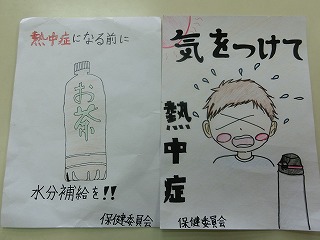 熱中症になる前に
お茶
水分補給を!!
保健委員会
気をつけて
熱中症
保健委員会